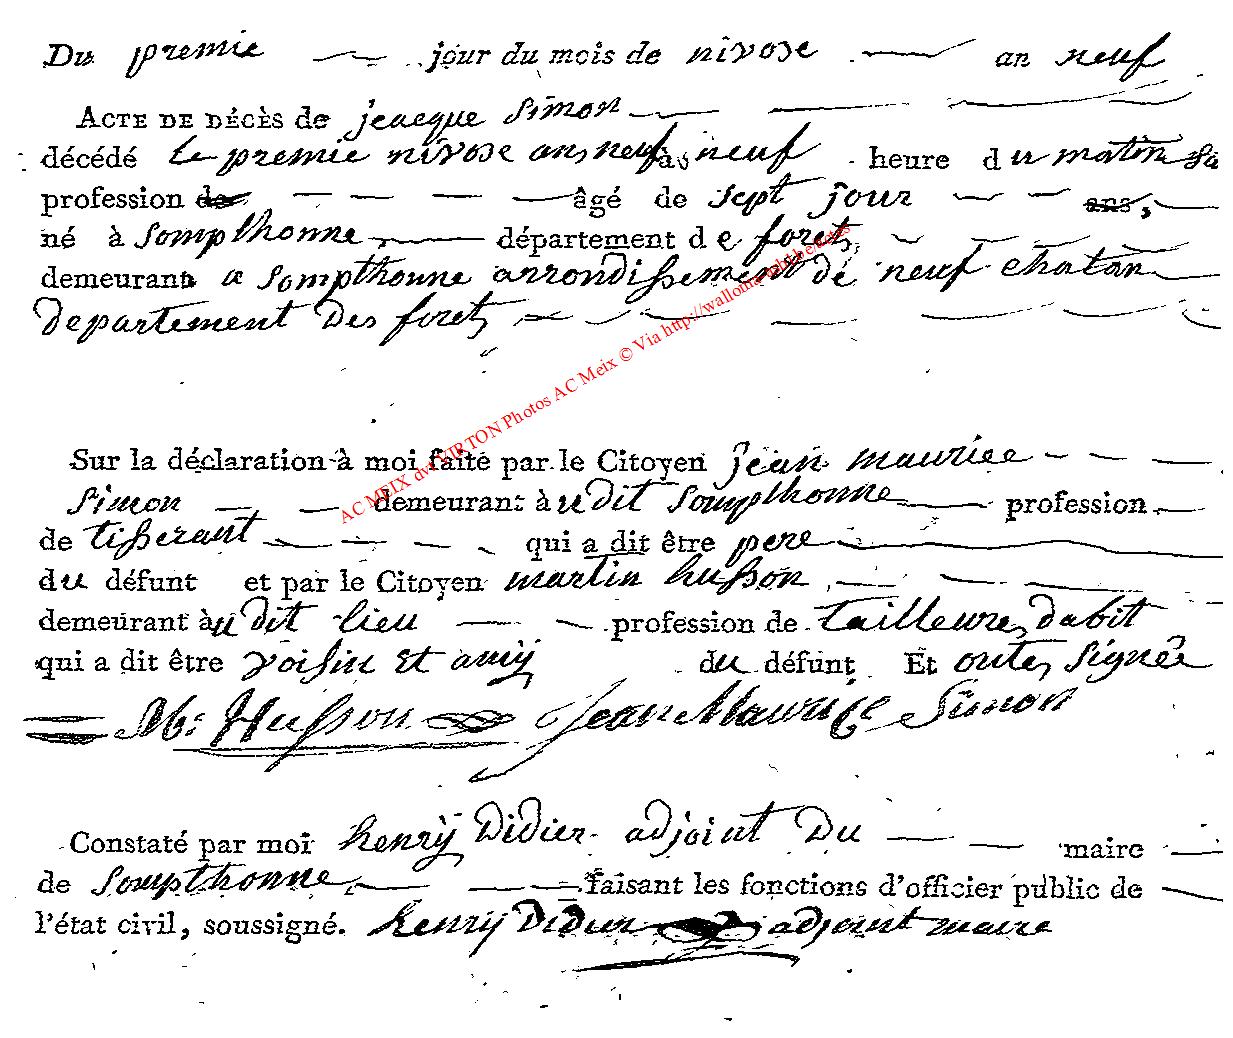 Du premie jour du mois de nivose an neuf
ACTE DE DÉCÈS de jeacque Simon
décédé Le premie nivose an neuf à neuf heure du maton Sa
profession de âgé de sept jour ans,
né à Sompthonne département de foret
demeurant a Sompthonne arrondissement de neuf chatan
departement Des foret
Sur la déclaration à moi faite par le Citoyen jean mauriee
Simon demeurant à u dit Sompthonne profession
de tisserant qui a dit être pere
du défunt et par le Citoyen martin husson,
demeurant à u dit lieu profession de tailleure dabit
qui a dit être voisin Et amÿ du défunt Et onte signée
M: Husson Jean Maurice Simon
Constaté par moi henrÿ Didier adjoint Du maire
de Sompthonne faisant les fonctions d'officier public de
l'état civil, soussigné. henrÿ Didier adjoint maire
AC MEIX dvt VIRTON Photos AC Meix © Via http://wallonia